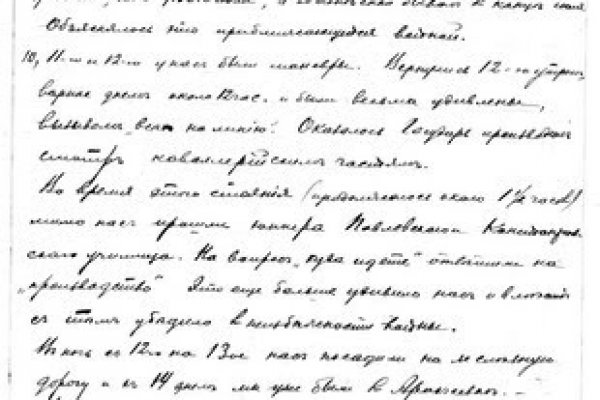 Объяснялось это приближающейся войной.
10, 11-го и 12-го у нас были маневры. Вернулись 12-го утром,
вернее днем около 12 час. и были весьма удивлены,
вызовом „всех на линию". Оказалось Государь производил
смотр кавалерийским частям.
Во время этого стояния (продолжалось около 1½ часов)
мимо нас прошли юнкера Павловского
училища. На вопрос „куда идете" ответили на
„производство" Это еще больше удивило нас и
с тем убедило в неизбежности войны.
В ночь с 12-го на 13-ое нас посадили на железную
дорогу и с 14 днем мы уже были в